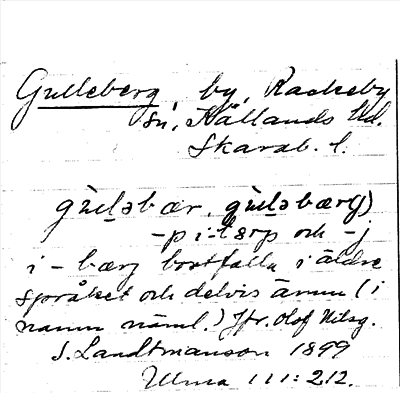 Gulleberg, by, Rackeby
sn, Kållands hd.
Skarab. l.
gu̇lsbær, gu̇lsbærg)
-p i -tærp och -j
i -bærj bortfalla i äldre
språket och delvis ännu (i
namn näml.) Jfr. Olof Nilsg.
S. Landtmanson 1899
Ulma 111:212.